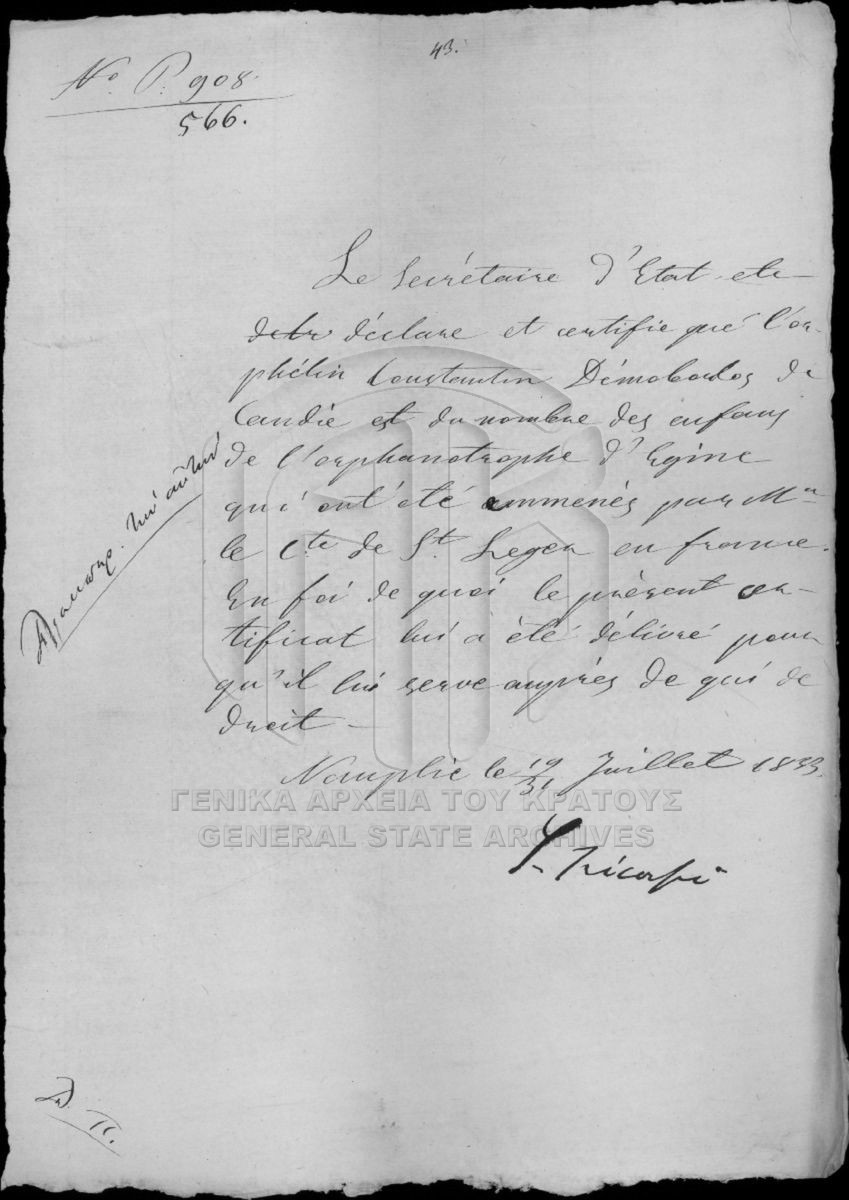 43.
No P. 908.
566.
Le Secrétaire d'Etat etc
déclare et certifie que l'or-
phélin Constantin de
Candie est du nombre des enfans
de l'orphanotrophe d'Egine
qui ont été emmenés par Mr
le Cte de St Leger en france.
En foi de quoi le présent cer-
tificat lui a été délivré pour
qu'il lui serve auprès de qui de
droit —
Nauplie le 19/31 Juillet 1833.
ΓΕΝΙΚΑ ΑΡΧΕΙΑ ΤΟΥ ΚΡΑΤΟΥΣ
GENERAL STATE ARCHIVES